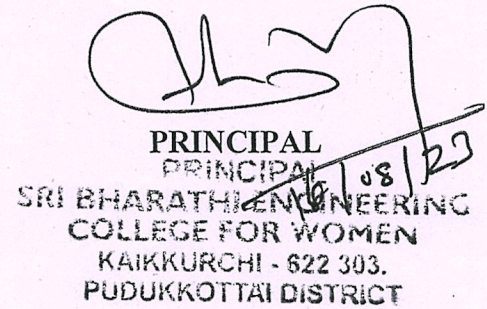 PRINCIPAL
PRINCIPAL
16/08/23
SRI BHARATHI ENGINEERING
COLLEGE FOR WOMEN
KAIKKURCHI - 622 303.
PUDUKKOTTAI DISTRICT